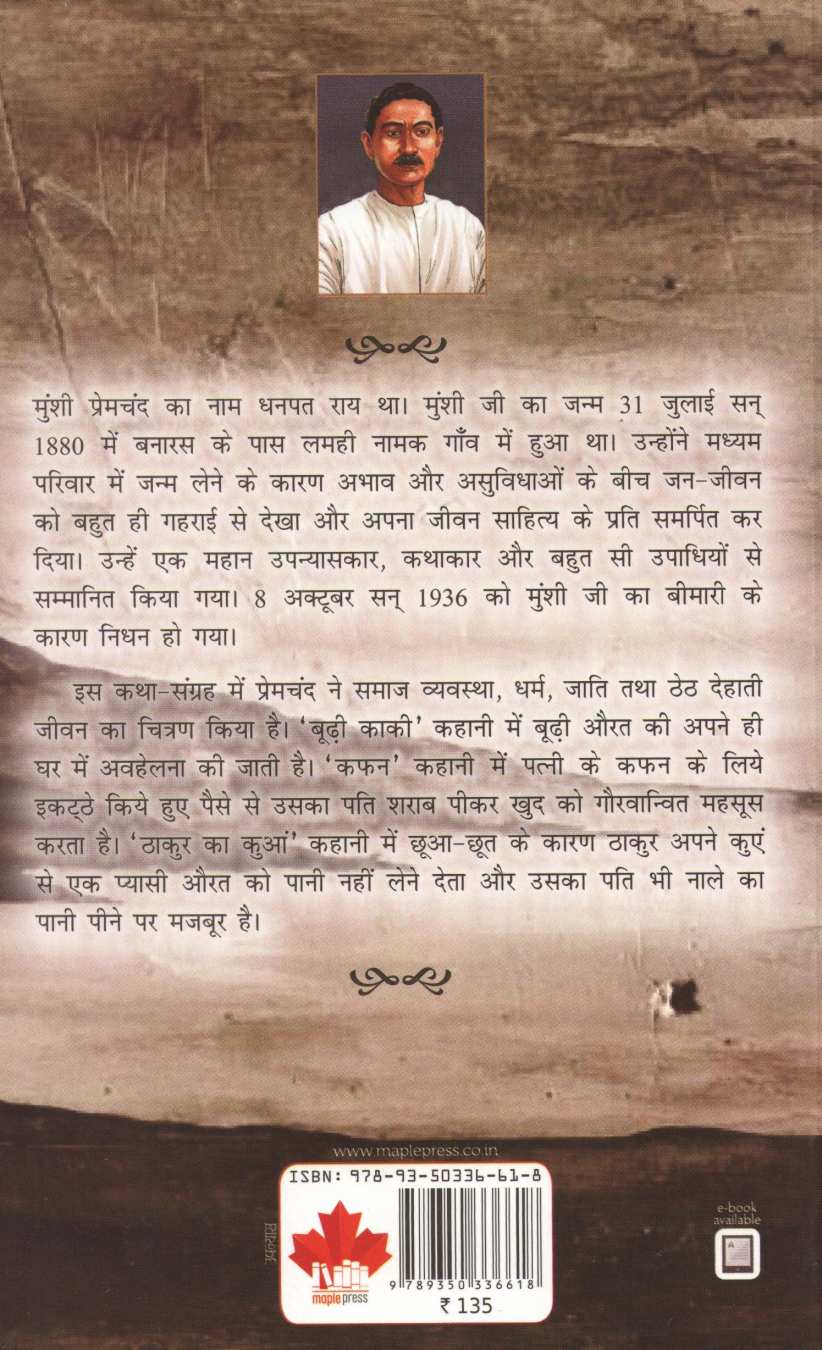 मुंशी प्रेमचंद का नाम धनपत राय था। मुंशी जी का जन्म 31 जुलाई सन्
1880 में बनारस के पास लमही नामक गाँव में हुआ था। उन्होंने मध्यम
परिवार में जन्म लेने के कारण अभाव और असुविधाओं के बीच जन-जीवन
को बहुत ही गहराई से देखा और अपना जीवन साहित्य के प्रति समर्पित कर
दिया। उन्हें एक महान उपन्यासकार, कथाकार और बहुत सी उपाधियों से
सम्मानित किया गया। 8 अक्टूबर सन् 1936 को मुंशी जी का बीमारी के
कारण निधन हो गया।
इस कथा-संग्रह में प्रेमचंद ने समाज व्यवस्था, धर्म, जाति तथा ठेठ देहाती
जीवन का चित्रण किया है। ‘बूढ़ी काकी’ कहानी में बूढ़ी औरत की अपने ही
घर में अवहेलना की जाती है। ‘कफन’ कहानी में पत्नी के कफन के लिये
इकट्ठे किये हुए पैसे से उसका पति शराब पीकर खुद को गौरवान्वित महसूस
करता है। ‘ठाकुर का कुआं’ कहानी में छूआ-छूत के कारण ठाकुर अपने कुएं
से एक प्यासी औरत को पानी नहीं लेने देता और उसका पति भी नाले का
पानी पीने पर मजबूर है।
www.maplepress.co.in
ISBN: 978-93-50336-61-8
maple press
9 789350 336618
₹ 135
e-book
available
A